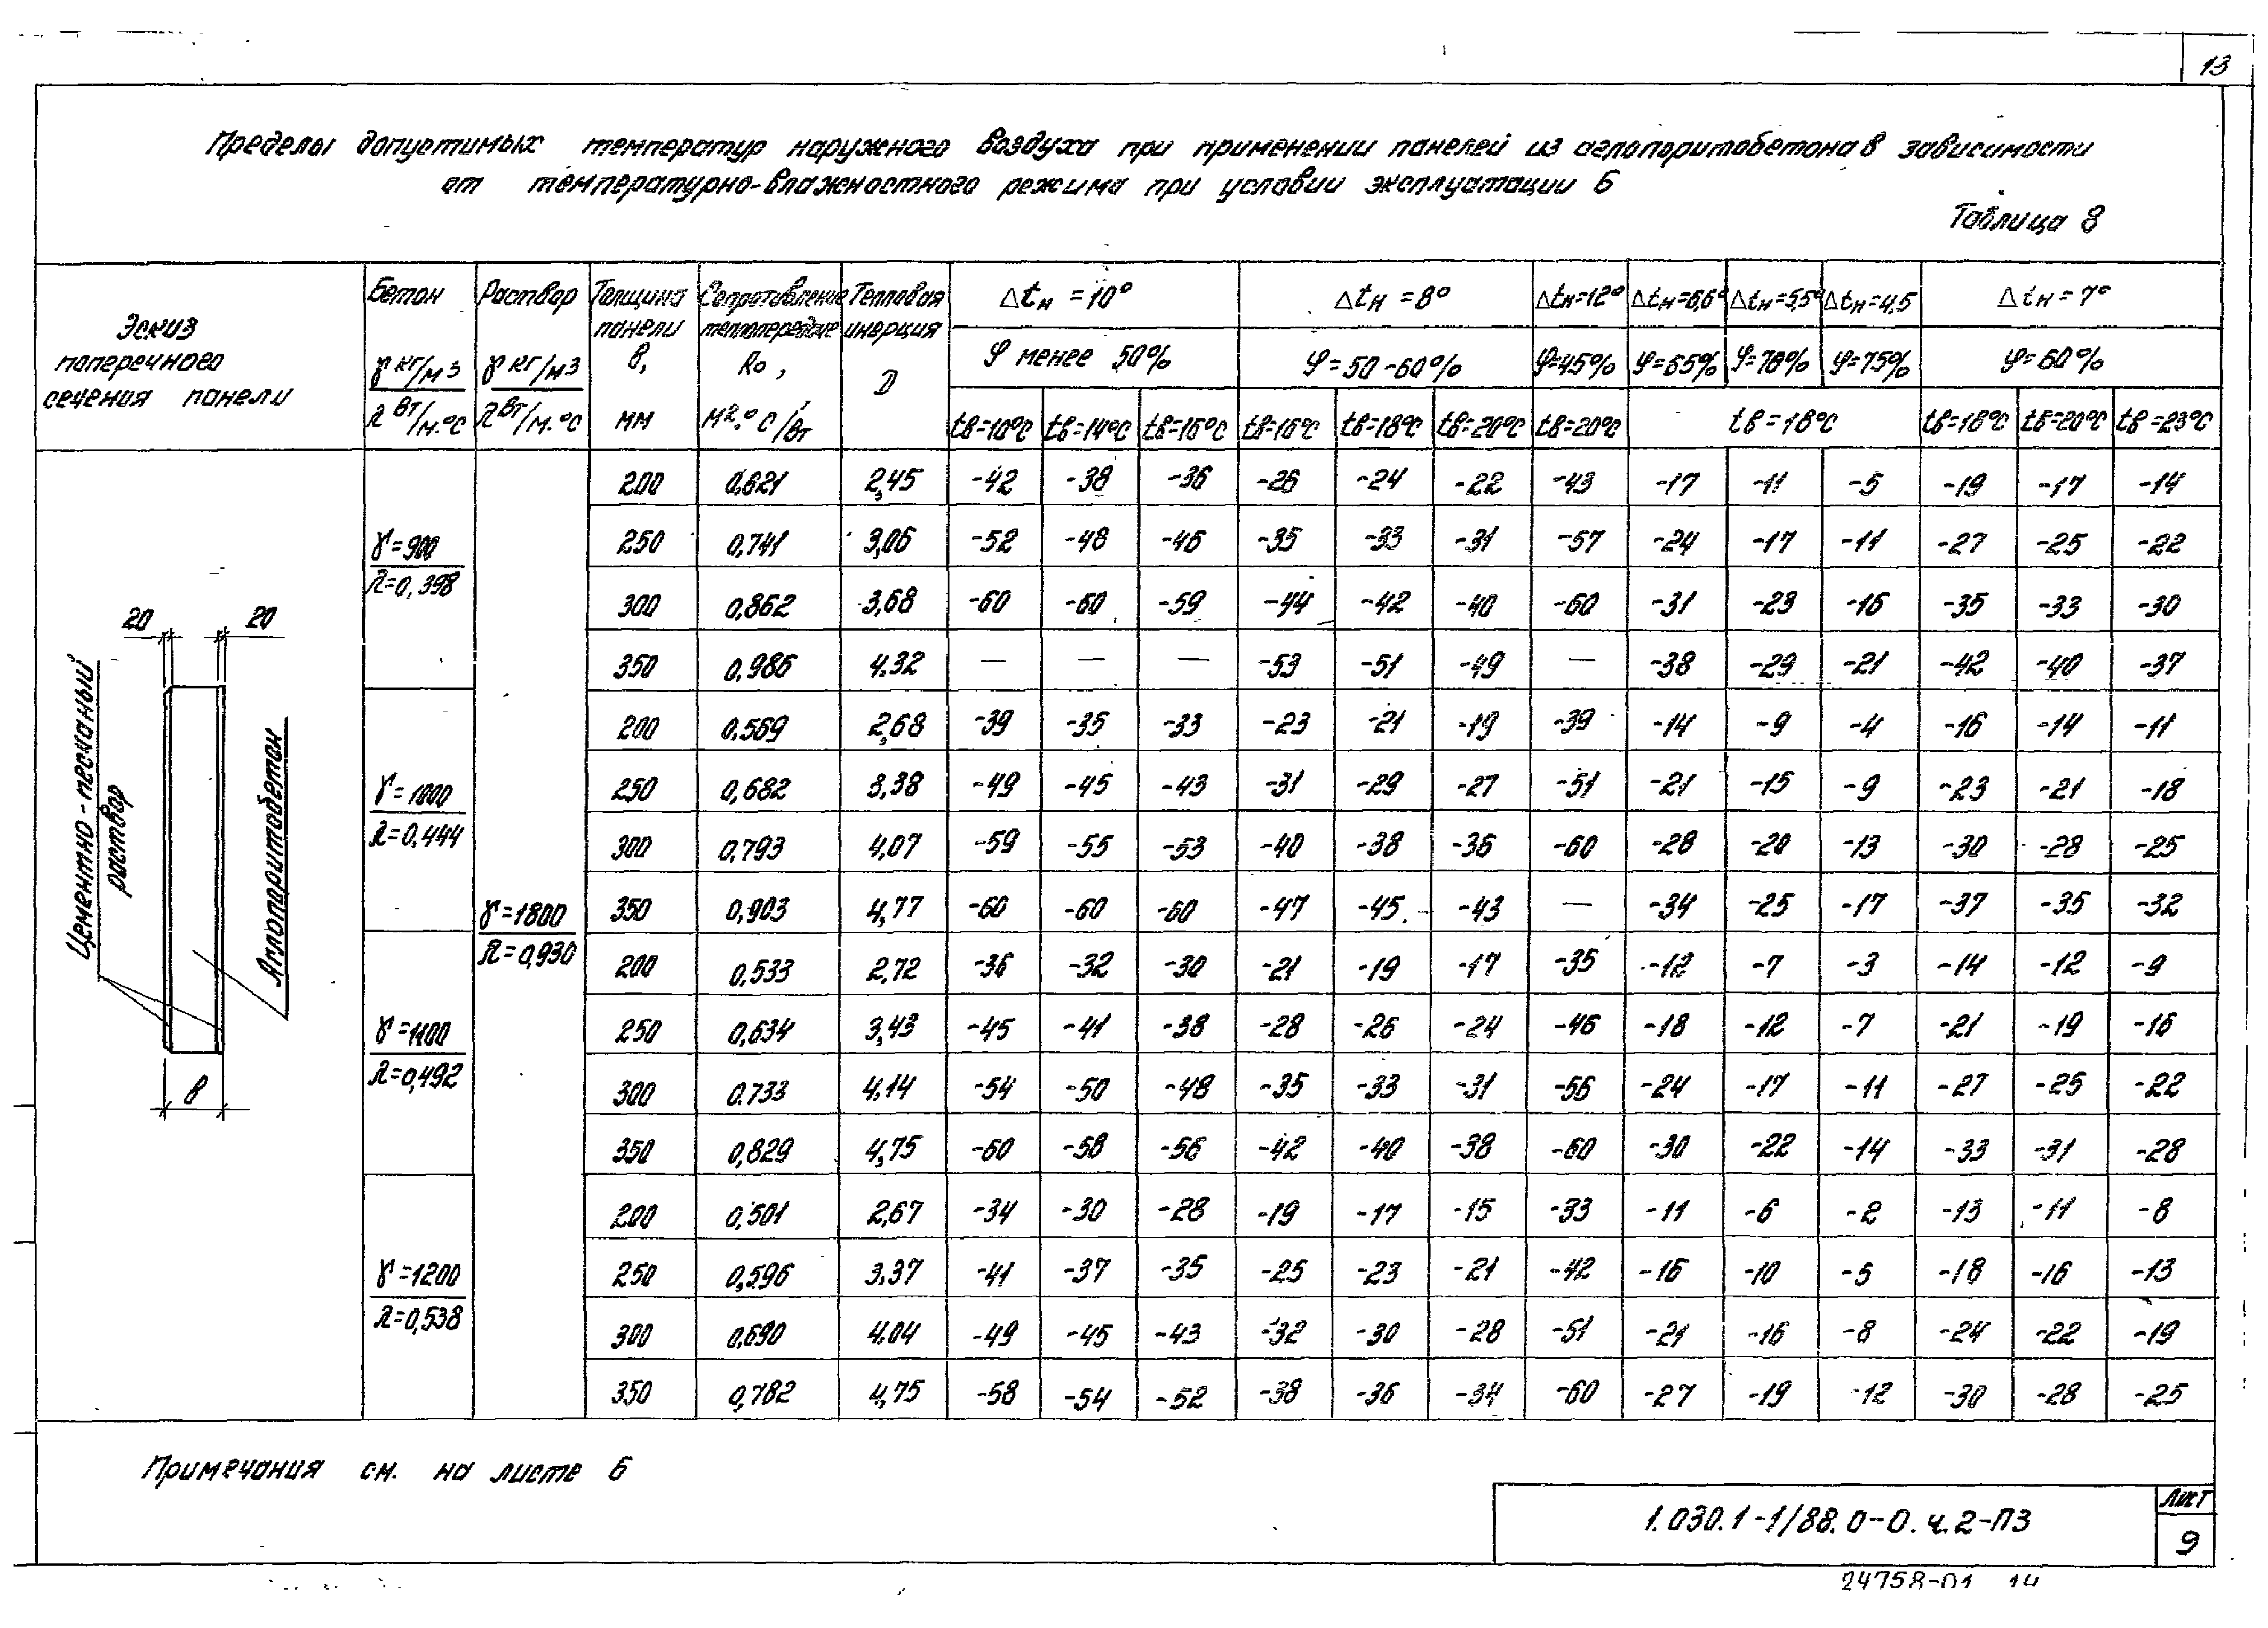 13
Пределы допустимых температур наружного воздуха при применении панелей из аглопоритобетона в зависимости
от температурно-влажностного режима при условии эксплуатации Б
Таблица 8
Эскиз поперечного сечения панели
Бетон γ кг/м3 λ Вт/м.°С
Раствор γ кг/м3 λ Вт/м.°С
Толщина панели В, мм
Сопротивление теплопередаче Rо, м2.°С/Вт
Тепловая инерция D
Δtн =10° Δtн =8° Δtн=12° Δtн=6,6° Δtн=5,5° Δtн=4,5 Δtн=7°
φ менее 50% φ=50-60% φ=45% φ=65% φ=70% φ=75% φ=60%
tв=10°С tв=14°С tв=16°С tв=16°С tв=18°С tв=20°С tв=20°С tв=18°С tв=18°С tв=20°С tв=23°С
20 20
Цементно-песчаный раствор
Аглопоритобетон
в
γ=1800
λ=0,930
γ=900
λ=0,398
200 0,621 2,45 -42 -38 -36 -26 -24 -22 -43 -17 -11 -5 -19 -17 -14
250 0,741 3,06 -52 -48 -46 -35 -33 -31 -57 -24 -17 -11 -27 -25 -22
300 0,862 3,68 -60 -60 -59 -44 -42 -40 -60 -31 -23 -16 -35 -33 -30
350 0,986 4.32 — — — -53 -51 -49 — -38 -29 -21 -42 -40 -37
γ=1000
λ=0,444
200 0.569 2,68 -39 -35 -33 -23 -21 -19 -39 -14 -9 -4 -16 -14 -11
250 0,682 3,38 -49 -45 -43 -31 -29 -27 -51 -21 -15 -9 -23 -21 -18
300 0,793 4,07 -59 -55 -53 -40 -38 -36 -60 -28 -20 -13 -30 -28 -25
350 0,903 4,77 -60 -60 -60 -47 -45 -43 — -34 -25 -17 -37 -35 -32
γ=1100
λ=0,492
200 0.533 2,72 -36 -32 -30 -21 -19 -17 -35 -12 -7 -3 -14 -12 -9
250 0,634 3,43 -45 -41 -38 -28 -26 -24 -46 -18 -12 -7 -21 -19 -16
300 0.733 4.14 -54 -50 -48 -35 -33 -31 -56 -24 -17 -11 -27 -25 -22
350 0,829 4,75 -60 -58 -56 -42 -40 -38 -60 -30 -22 -14 -33 -31 -28
γ=1200
λ=0,538
200 0,501 2,67 -34 -30 -28 -19 -17 -15 -33 -11 -6 -2 -13 -11 -8
250 0,596 3,37 -41 -37 -35 -25 -23 -21 -42 -16 -10 -5 -18 -16 -13
300 0,690 4.04 -49 -45 -43 -32 -30 -28 -51 -21 -16 -8 -24 -22 -19
350 0,782 4,75 -58 -54 -52 -38 -36 -34 -60 -27 -19 -12 -30 -28 -25
Примечания см. на листе 6
1.030.1-1/88.0-0.ч.2-ПЗ
Лист
9
24758-01 14